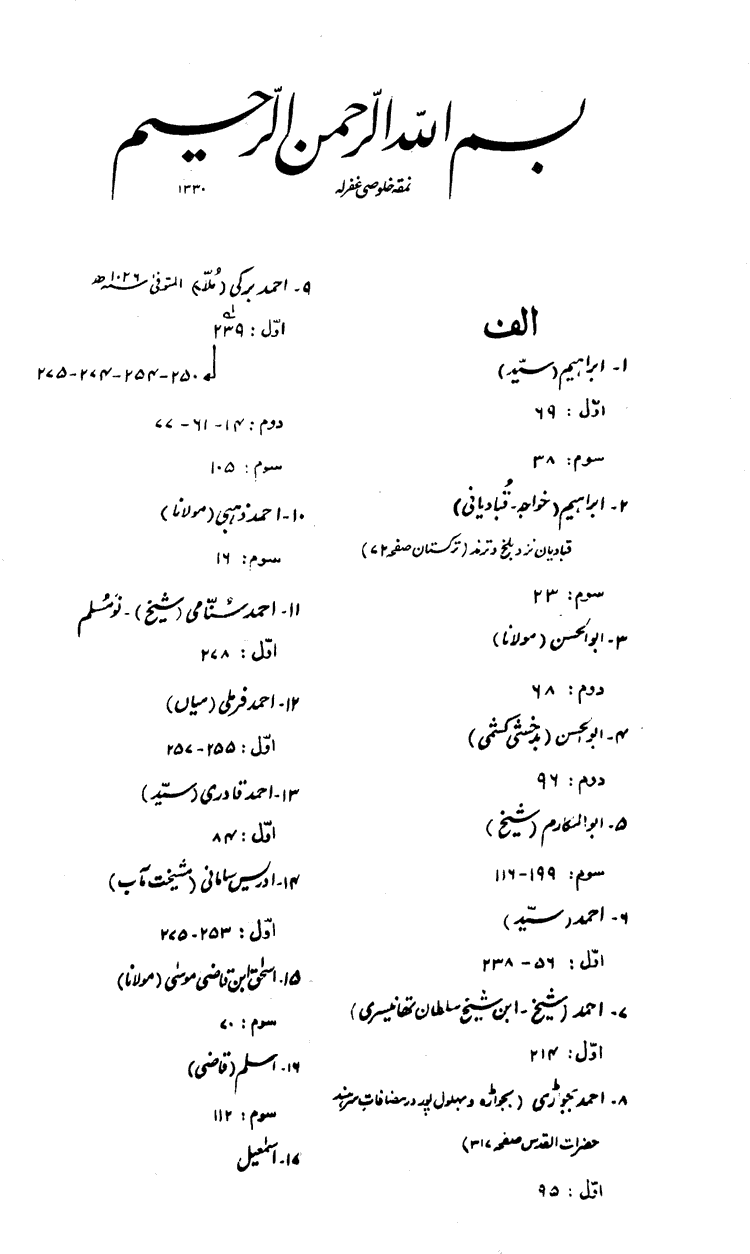 بسم اللّٰه الرّحمن الرّحیم
نمقه خلوصی غفرله ۱۳۳۰
الف
۱- ابراہیم (سیّد)
اوّل : ۶۹
سوم: ۳۸
۲- ابراہیم (خواجہ - قُبادیانی)
قبادیان نزد بلخ و ترمذ (ترکستان صفحہ ۷۲)
سوم: ۲۳
۳- ابوالحسن (مولانا)
دوم: ۶۸
۴- ابوالحسن (بدخشی کشمی)
دوم: ۹۶
۵- ابوالمکارم (شیخ)
سوم: ۱۹۹-۱۱۶
۶- احمد (سیّد)
اوّل: ۵۶ - ۲۳۸
۷- احمد (شیخ - ابن شیخ سلطان تھانیسری)
اوّل: ۲۱۴
۸- احمد بجواڑی (بجواڑہ و بہلول پور در مضافات سرہند
حضرات القدس صفحہ ۳۱۷)
اوّل : ۹۵
۹- احمد برکی (مُلّا) المتوفیٰ ۱۰۲۶ سنہ ھ
اوّل : ۲۳۹
۲۵۰-۲۵۴-۲۷۴-۲۷۵
دوم: ۱۴-۶۱-۷۷
سوم: ۱۰۵
۱۰- احمد ذہبی (مولانا)
سوم: ۱۶
۱۱- احمد سنّامی (شیخ) - نَومُسلم
اوّل: ۲۷۸
۱۲- احمد فرملی (میاں)
اوّل: ۲۵۵-۲۵۷
۱۳- احمد قادری (سیّد)
اوّل: ۸۴
۱۴- ادریس سامانی (مشیخت مآب)
اوّل: ۲۵۳-۲۷۵
۱۵- اسحٰق ابن قاضی موسٰی (مولانا)
سوم: ۷۰
۱۶- اسلم (قاضی)
سوم: ۱۱۲
۱۷- اسمٰعیل